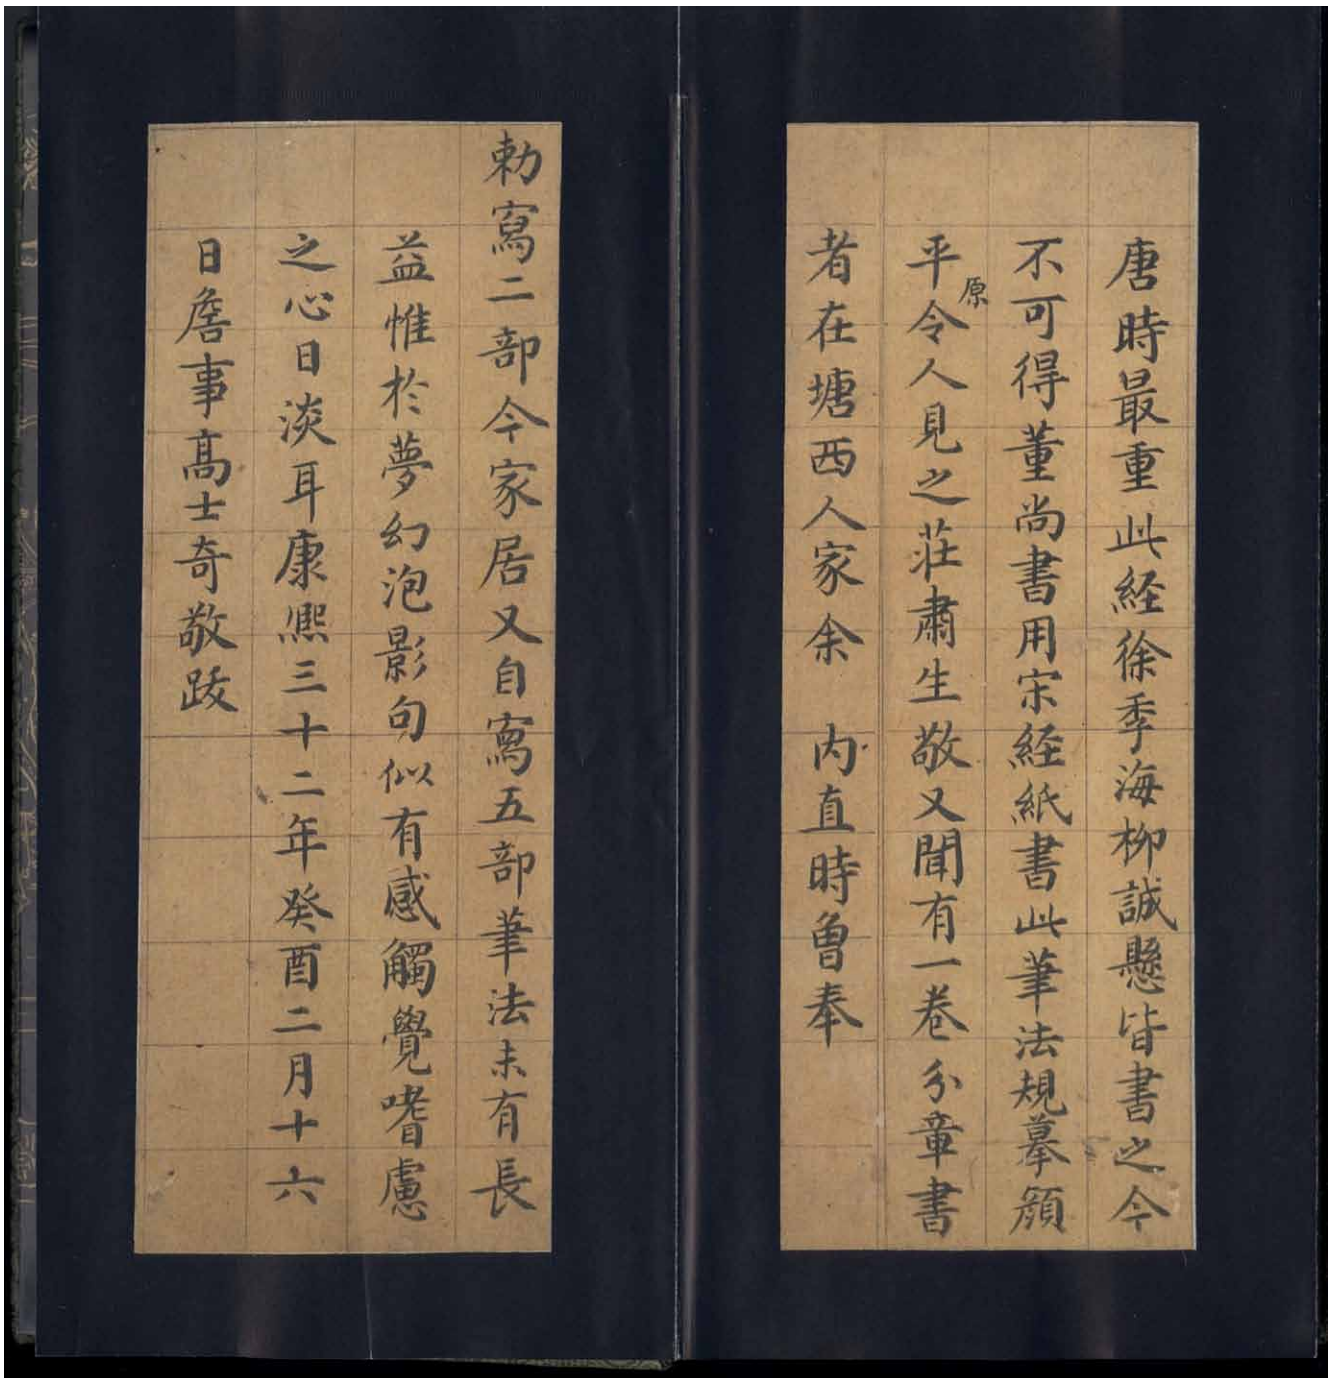 唐時最重此経徐季海柳誠懸皆書之今
不可得董尚書用宋経紙書此筆法規摹顔
平原令人見之莊肅生敬又聞有一卷分章書
者在塘西人家余 内直時曽奉
勅寫二部今家居又自寫五部筆法未有長
益惟於夢幻泡影句似有感觸覺嗜慮
之心日淡耳康熙三十二年癸酉二月十六
日詹事髙士奇敬跋